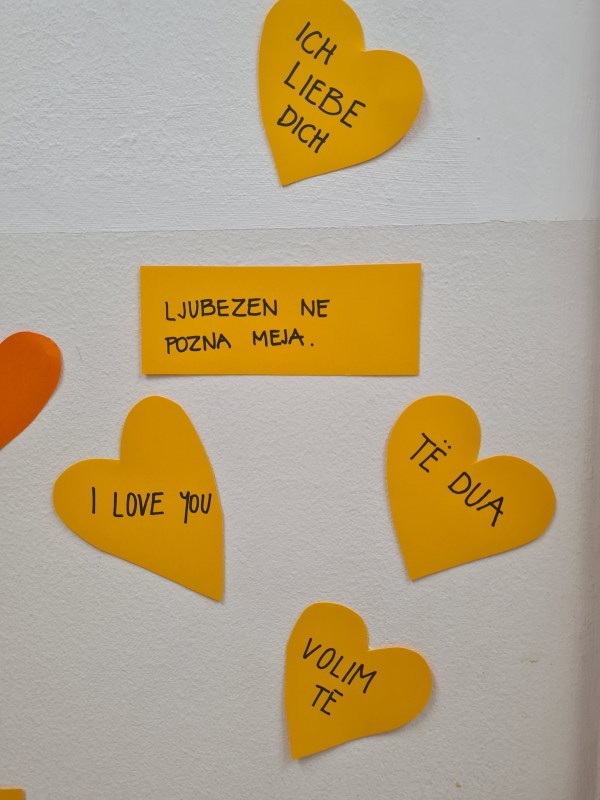 ICH
LIEBE
DICH
LJUBEZEN NE
POZNA MEJA.
I LOVE YOU
TË DUA
VOLIM
TE